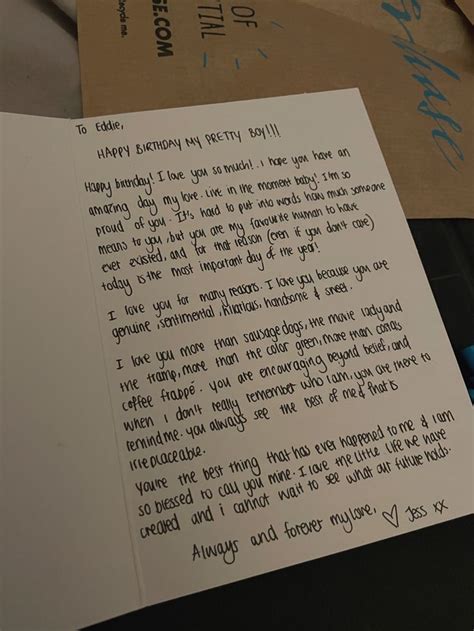 OF
TIAL
SE.COM
recycle me.
To Eddie,
HAPPY BIRTHDAY MY PRETTY BOY!!!
Happy birthday! I love you so much!. I hope you have an
amazing day my love. Live in the moment baby! I'm so
proud of you. It's hard to put into words how much someone
means to you, but you are my favourite human to have
ever existed, and for that reason (even if you don't care)
today is the most important day of the year!
I love you for many reasons. I love you because you are
genuine, sentimental, hilarious, handsome & sweet.
I love you more than sausage dogs, the movie lady and
the tramp, more than the color green, more than
coffee frappé. you are encouraging beyond belief, and
when I don't really remember who I am, you are there to
remind me. you always see the best of me & that is
irreplaceable.
You're the best thing that has ever happened to me & I am
so blessed to call you mine. I love the little life we have
created and i cannot wait to see what our future holds.
Always and forever my love, ♡ Jess xx